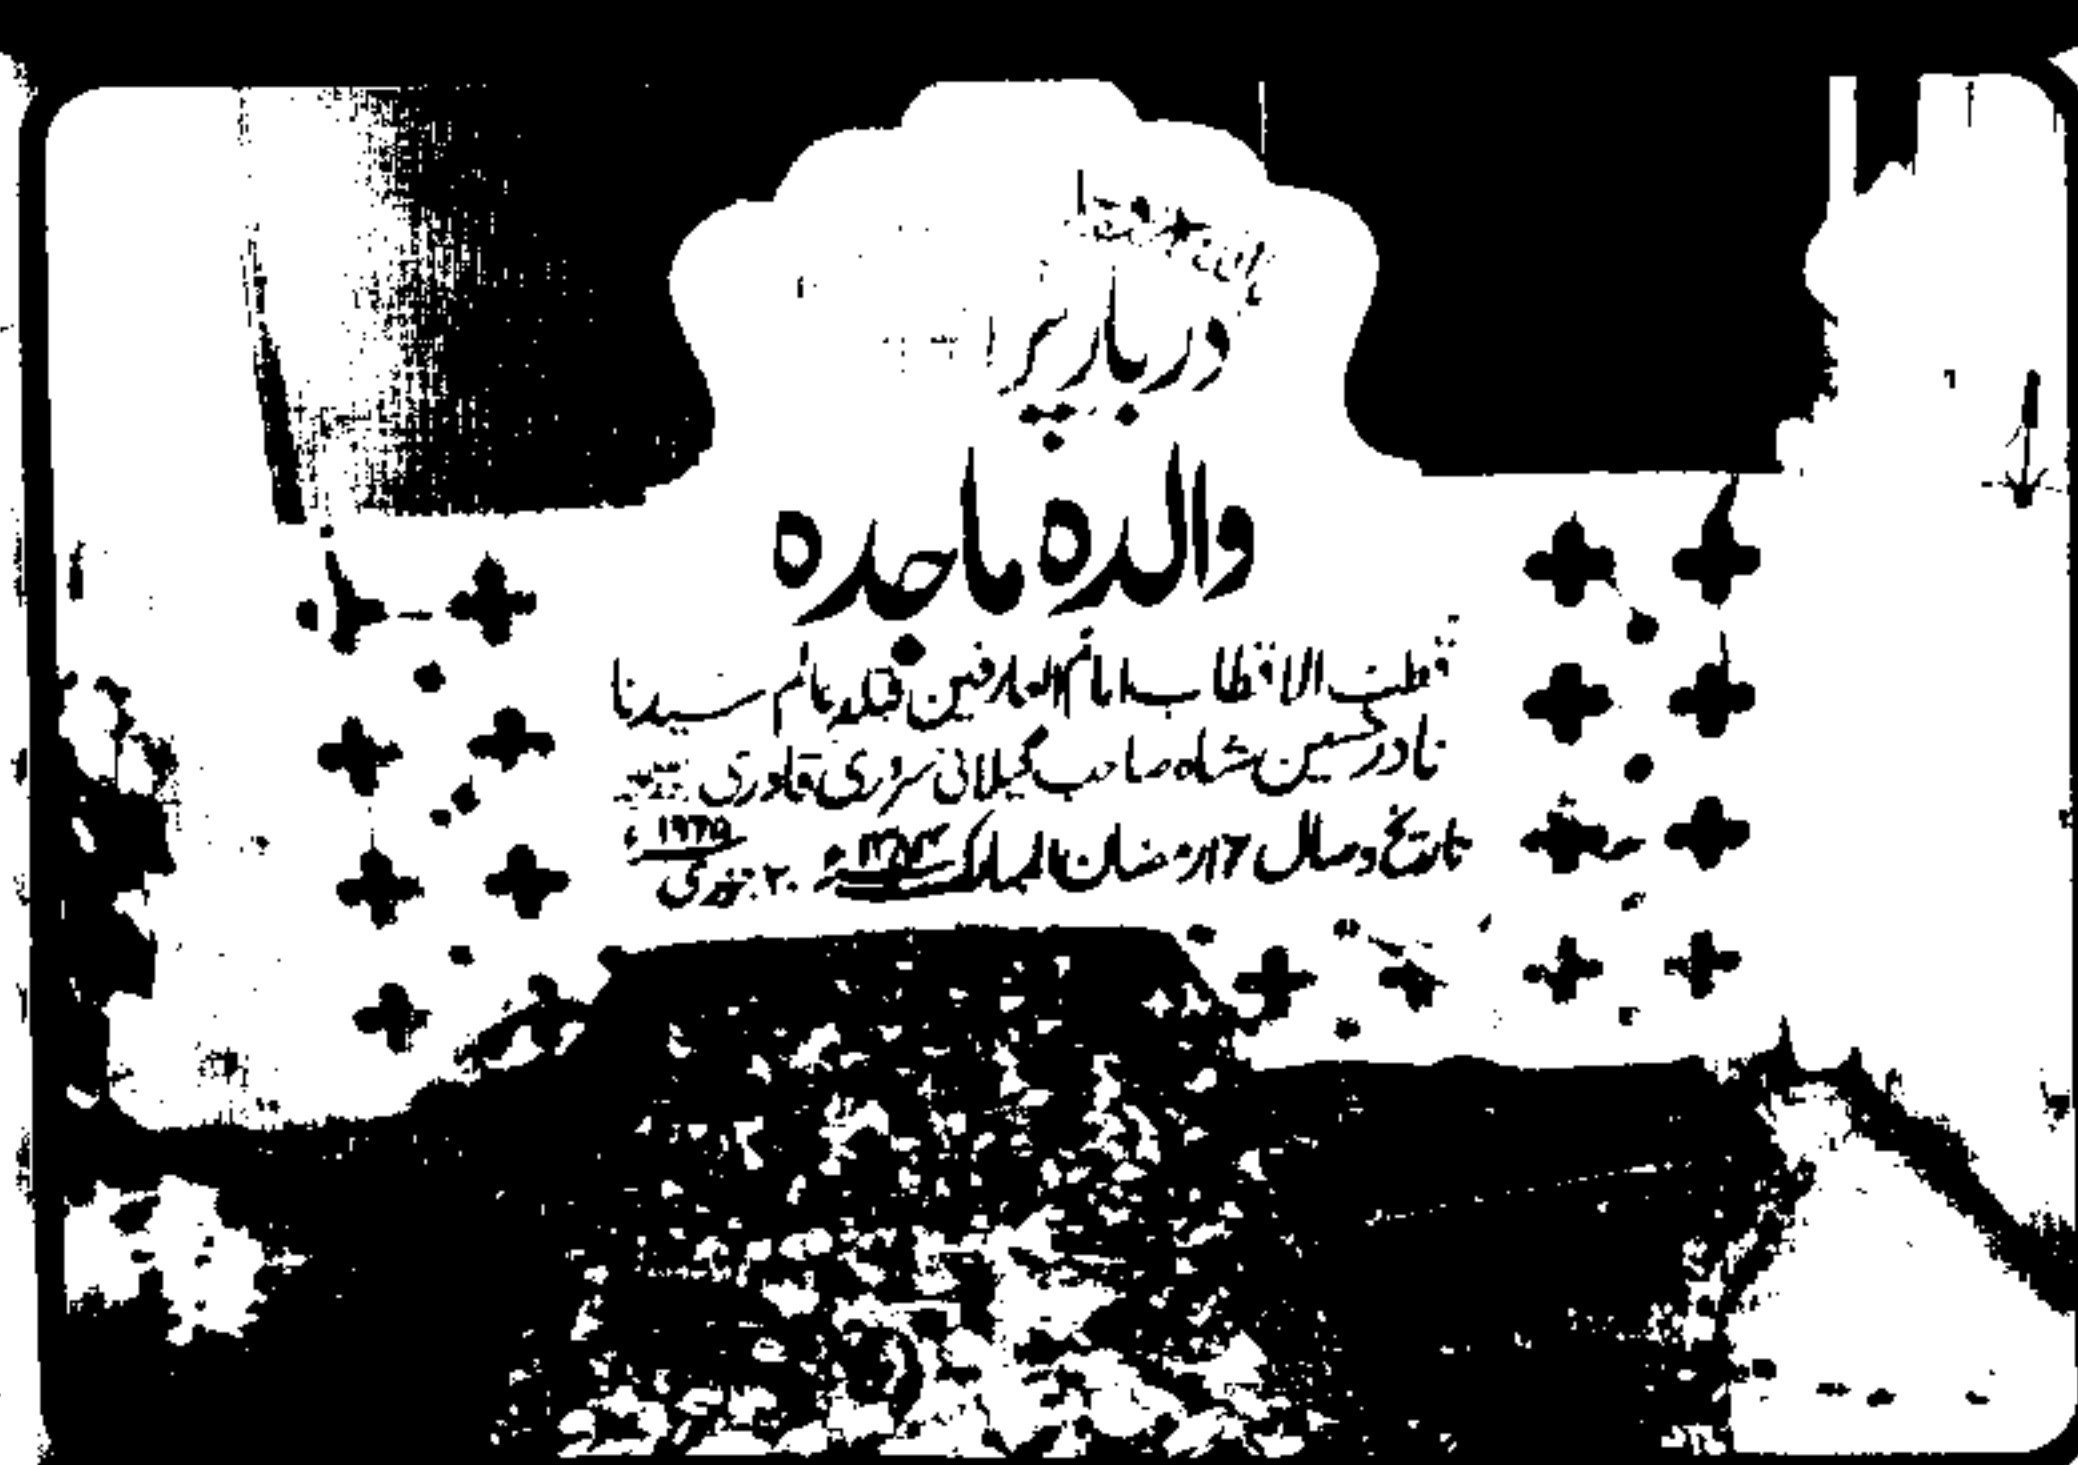 دربار پر
والدہ ماجدہ
قطب الاقطاب امام العارفین قبلہ عالم سیدنا
نادر حسین شاہ صاحب گیلانی سروری قادری
تاریخ وصال ۱۶ رمضان المبارک ۱۳۸۴ھ ۲۰ جنوری ۱۹۶۵ء